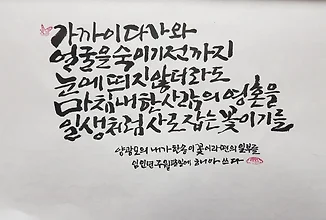 가까이 다가와
얼굴을 숙이기 전까지
눈에 띄지 않더라도
마침내 한 사람의 영혼을
일생처럼 사로잡는 꽃이기를
양광모의 내가 한송이 꽃이라면의 일부를
쓰다